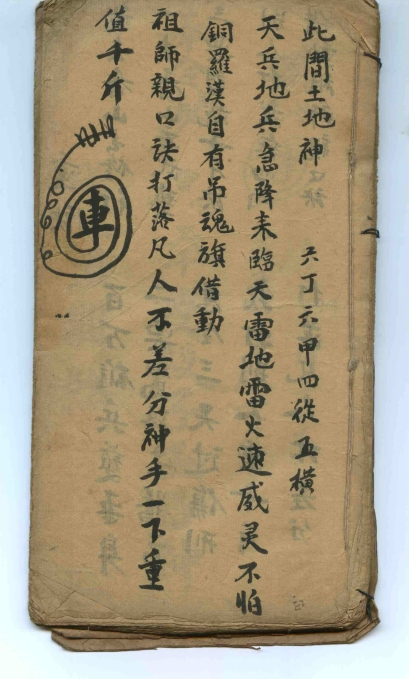 此間土地神　六丁六甲四從五横
天兵地兵急降来臨天雷地雷火速威灵不怕
銅羅漢自有吊魂旗借動
祖師親口訣打落凡人不差分神手一下重
值千斤
車